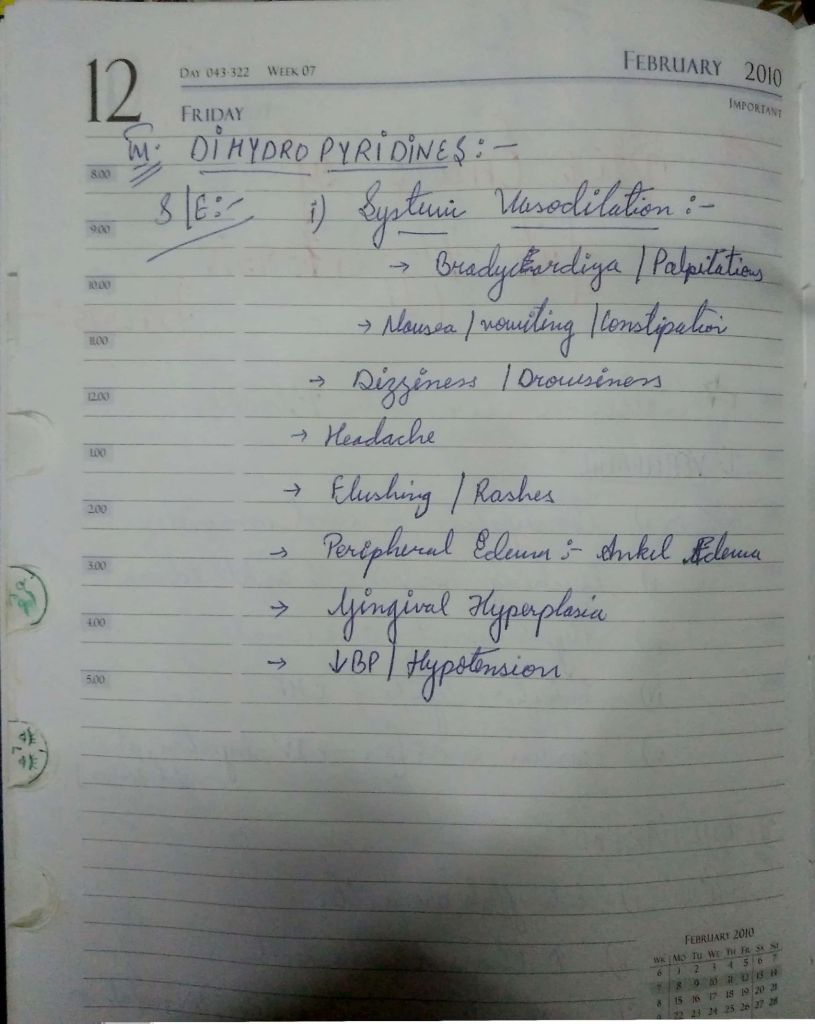 12
DAY 043-322 WEEK 07
FEBRUARY 2010
IMPORTANT
FRIDAY
DIHYDRO PYRIDINES :-
8.00
S/E:- i) Systemic Vasodilation :-
9.00
→ Bradycardiya / Palpitations
10.00
→ Nausea / vomiting / Constipation
11.00
→ Dizziness / Drowsiness
12.00
→ Headache
1.00
→ Flushing / Rashes
2.00
→ Peripheral Edema :- Ankel Edema
3.00
→ Gingival Hyperplasia
4.00
→ ↓BP / Hypotension
5.00
FEBRUARY 2010
WK MO TU WE TH FR SA SU
6 1 2 3 4 5 6 7
7 8 9 10 11 12 13 14
8 15 16 17 18 19 20 21
9 22 23 24 25 26 27 28